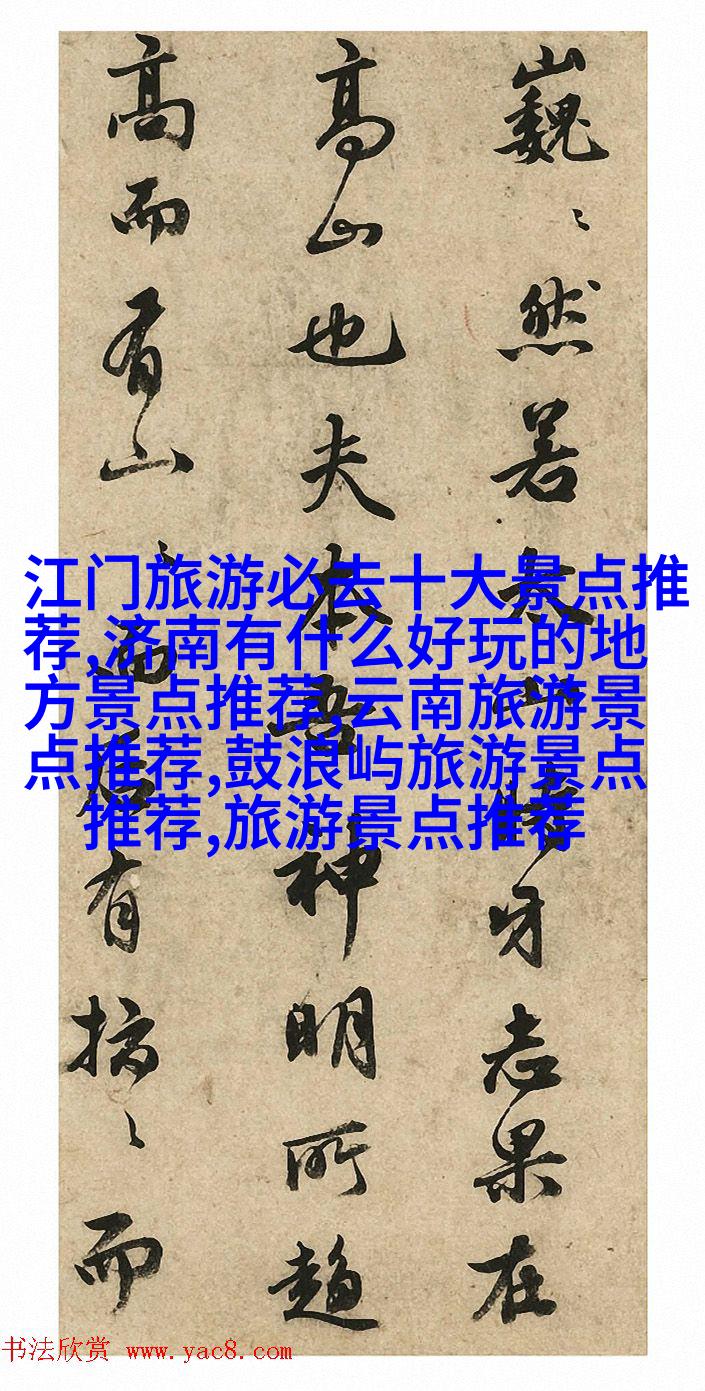 巍〻然若太山時牙志果在
高山也夫本吾神明所趨
高而有山〻而后有〻而
江门旅游必去十大景点推
荐,济南有什么好玩的地
方景点推荐,云南旅游景
点推荐,鼓浪屿旅游景点
推荐,旅游景点推荐
书法欣赏 www.yac8.com